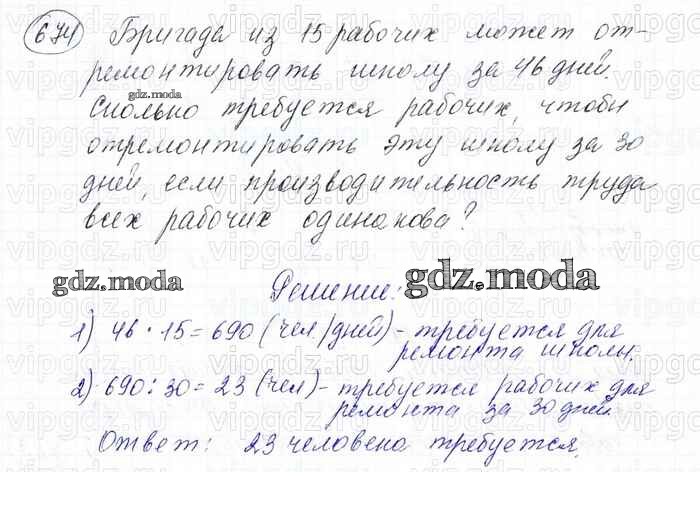 674 Бригада из 15 рабочих может от-
ремонтировать школу за 46 дней.
gdz.moda
Сколько требуется рабочих, чтобы
отремонтировать эту школу за 30
дней, если производительность труда
всех рабочих одинакова?
gdz.moda Решение: gdz.moda
1) 46 · 15 = 690 (чел/дней) - требуется для
ремонта школы.
2) 690 : 30 = 23 (чел) - требуется рабочих для
ремонта за 30 дней.
Ответ: 23 человека требуется.
vipgdz.ru